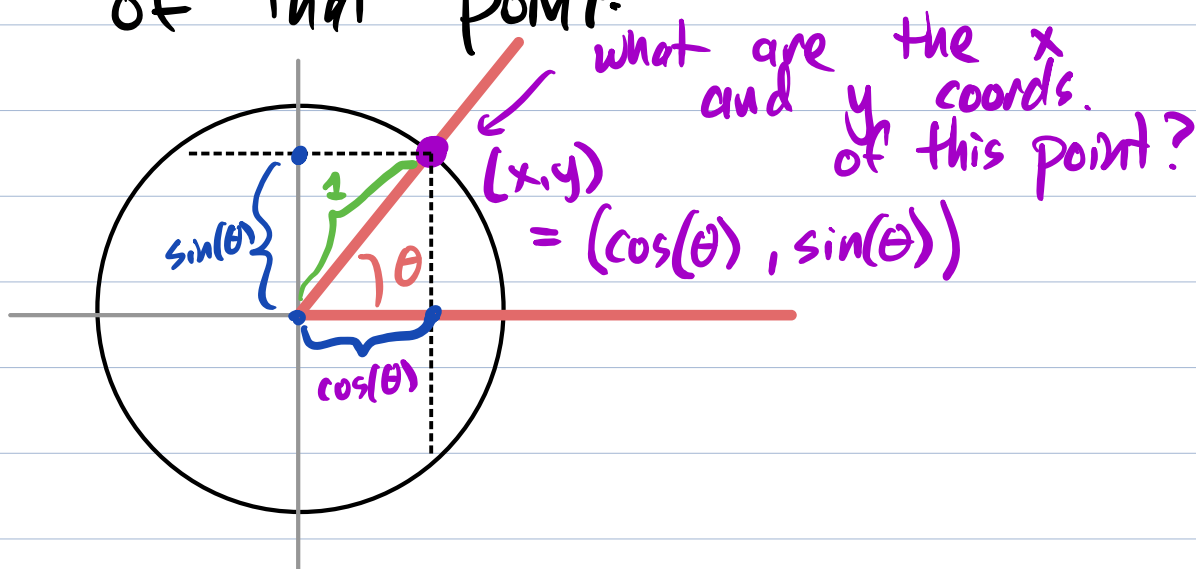 of that point.
what are the x
and y coords.
of this point?
(x,y)
= (cos(θ), sin(θ))
1
sin(θ)
θ
cos(θ)